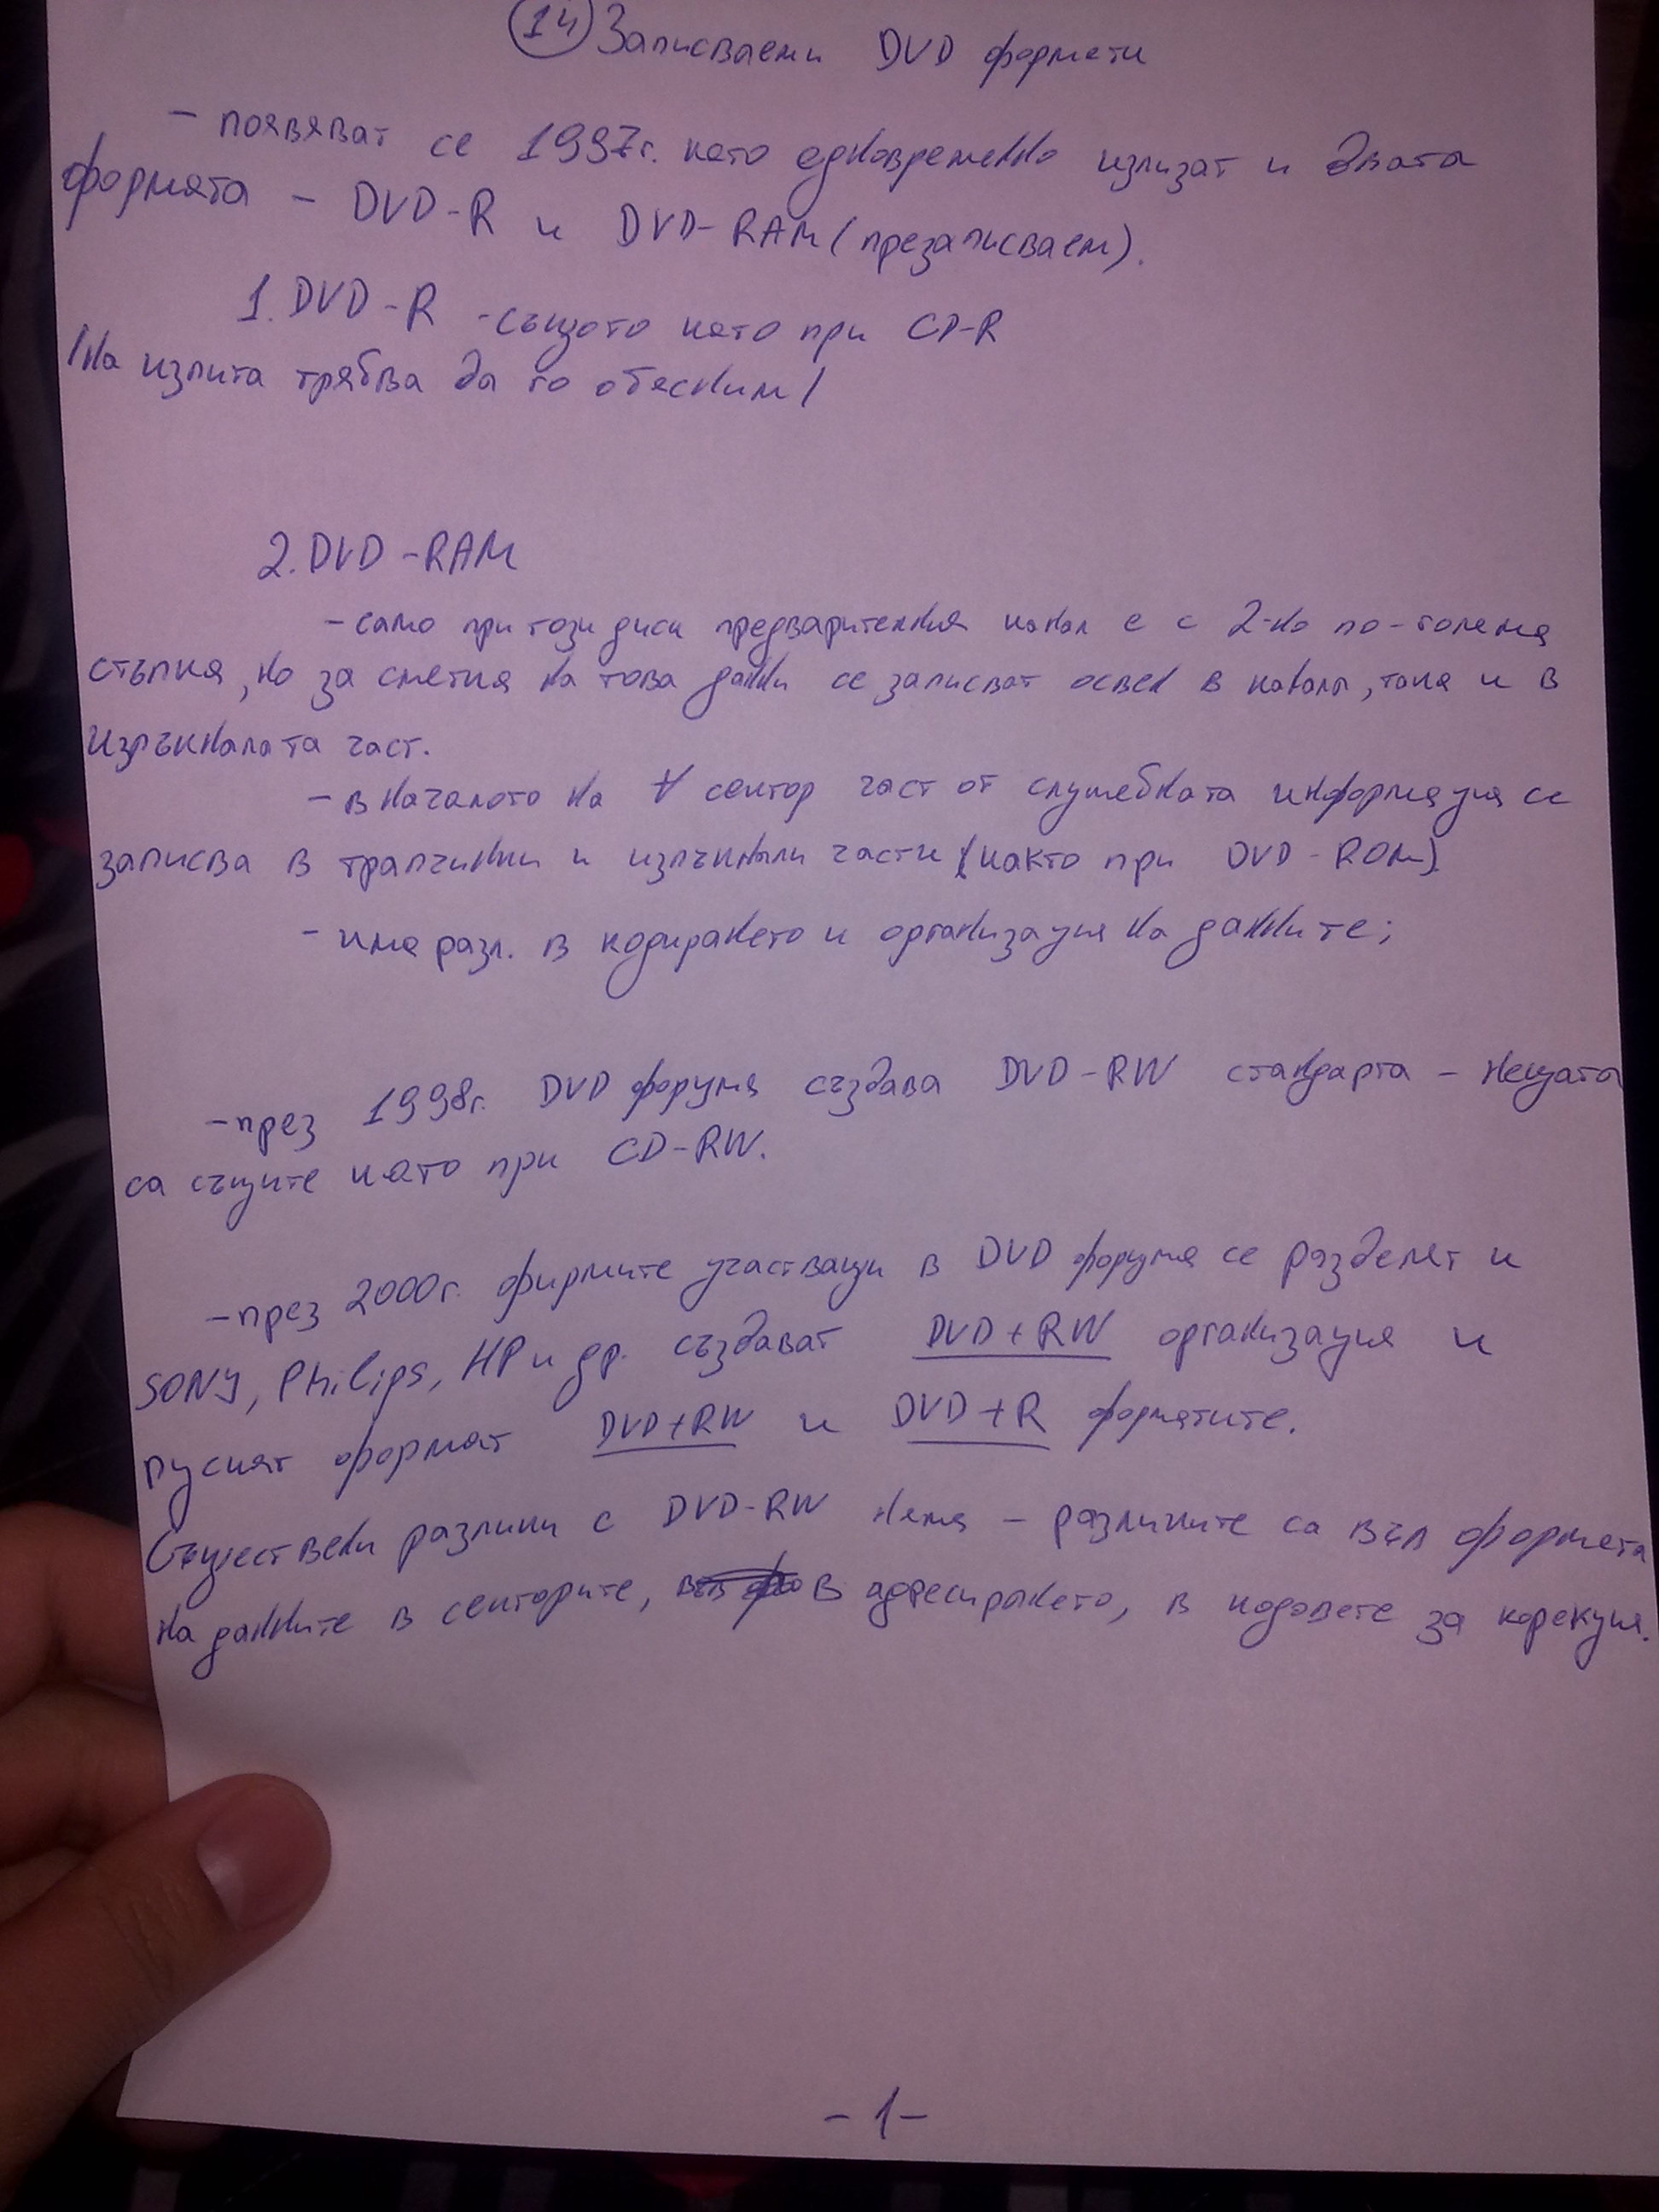 14 Записваеми DVD формати
- появяват се 1997г. като едновременно излизат и двата
формата - DVD-R и DVD-RAM (презаписваем).
1. DVD-R - същото като при CD-R
/На изпита трябва да го обясним/
2. DVD-RAM
- само при този диск предварителния канал е с 2-но по-голяма
стъпка, но за сметка на това данни се записват освен в канала, така и в
изпъкналата част.
- в началото на ∀ сектор част от служебната информация се
записва в трапчинки и изпъкнали части (както при DVD-ROM)
- има разл. в кодирането и организация на данните;
- през 1998г. DVD форума създава DVD-RW стандарта - нещата
са същите като при CD-RW.
- през 2000г. фирмите участващи в DVD форума се разделят и
SONY, Philips, HP и др. създават DVD+RW организация и
пускат формат DVD+RW и DVD+R форматите.
Съществени разлики с DVD-RW няма - разликите са във формата
на данните в секторите, в адресирането, в кодовете за корекция.
- 1 -